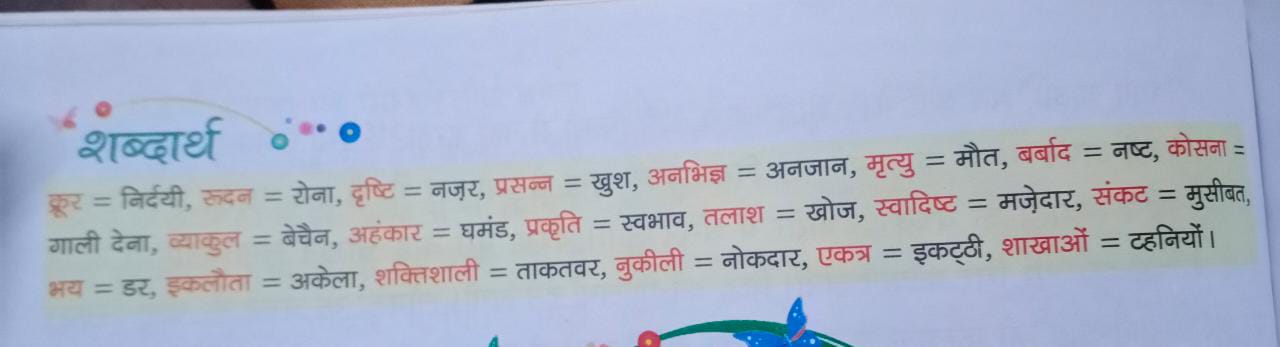 शब्दार्थ
क्रूर = निर्दयी, रूदन = रोना, दृष्टि = नज़र, प्रसन्न = खुश, अनभिज्ञ = अनजान, मृत्यु = मौत, बर्बाद = नष्ट, कोसना =
गाली देना, व्याकुल = बेचैन, अहंकार = घमंड, प्रकृति = स्वभाव, तलाश = खोज, स्वादिष्ट = मज़ेदार, संकट = मुसीबत,
भय = डर, इकलौता = अकेला, शक्तिशाली = ताकतवर, नुकीली = नोकदार, एकत्र = इकट्ठी, शाखाओं = टहनियों।